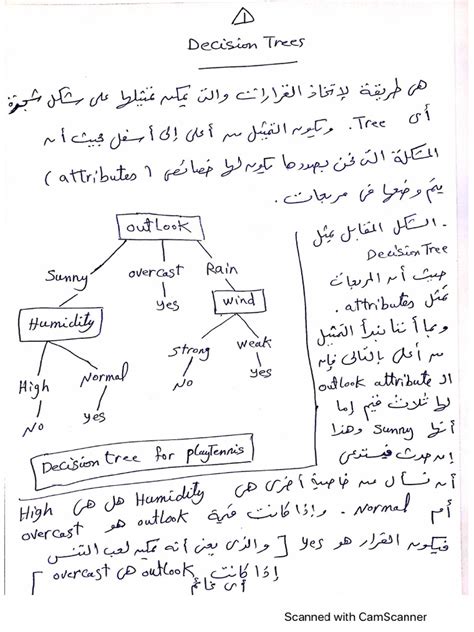 1
Decision Trees
هى طريقة لإتخاذ القرارات والتى يمكن تمثيلها على شكل شجرة
أى Tree. ويكون التمثيل من أعلى إلى أسفل بحيث أن
المشكلة التى نحن بصددها تكون لها خصائص (attributes)
يتم وضعها فى مربعات.
outlook
Sunny overcast Rain
Humidity yes wind
High Normal strong weak
No yes No yes
Decision tree for playTennis
. الشكل المقابل يمثل
Decision Tree
حيث أن المربعات
تمثل attributes.
وبما أننا نبدأ التمثيل
من أعلى بالتالى فإن
الـ outlook attribute
لها ثلاث قيم إما
أنها Sunny وهذا
إن حدث فيستدعى
أن نسأل عن خاصية أخرى هى Humidity هل هى High
أم Normal. وإذا كانت قيمة outlook هو overcast
فيكون القرار هو yes [والذى يعنى أنه يمكن لعب التنس
إذا كانت outlook هى overcast
أى غائم ]
Scanned with CamScanner